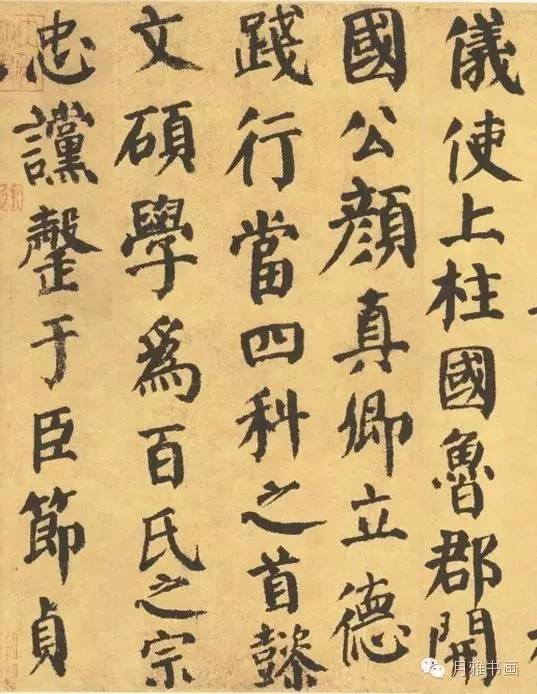 儀使上柱國魯郡開
國公顏真卿立德
踐行當四科之首懿
文碩學爲百氏之宗
忠讜罄于臣節貞
月雅书画